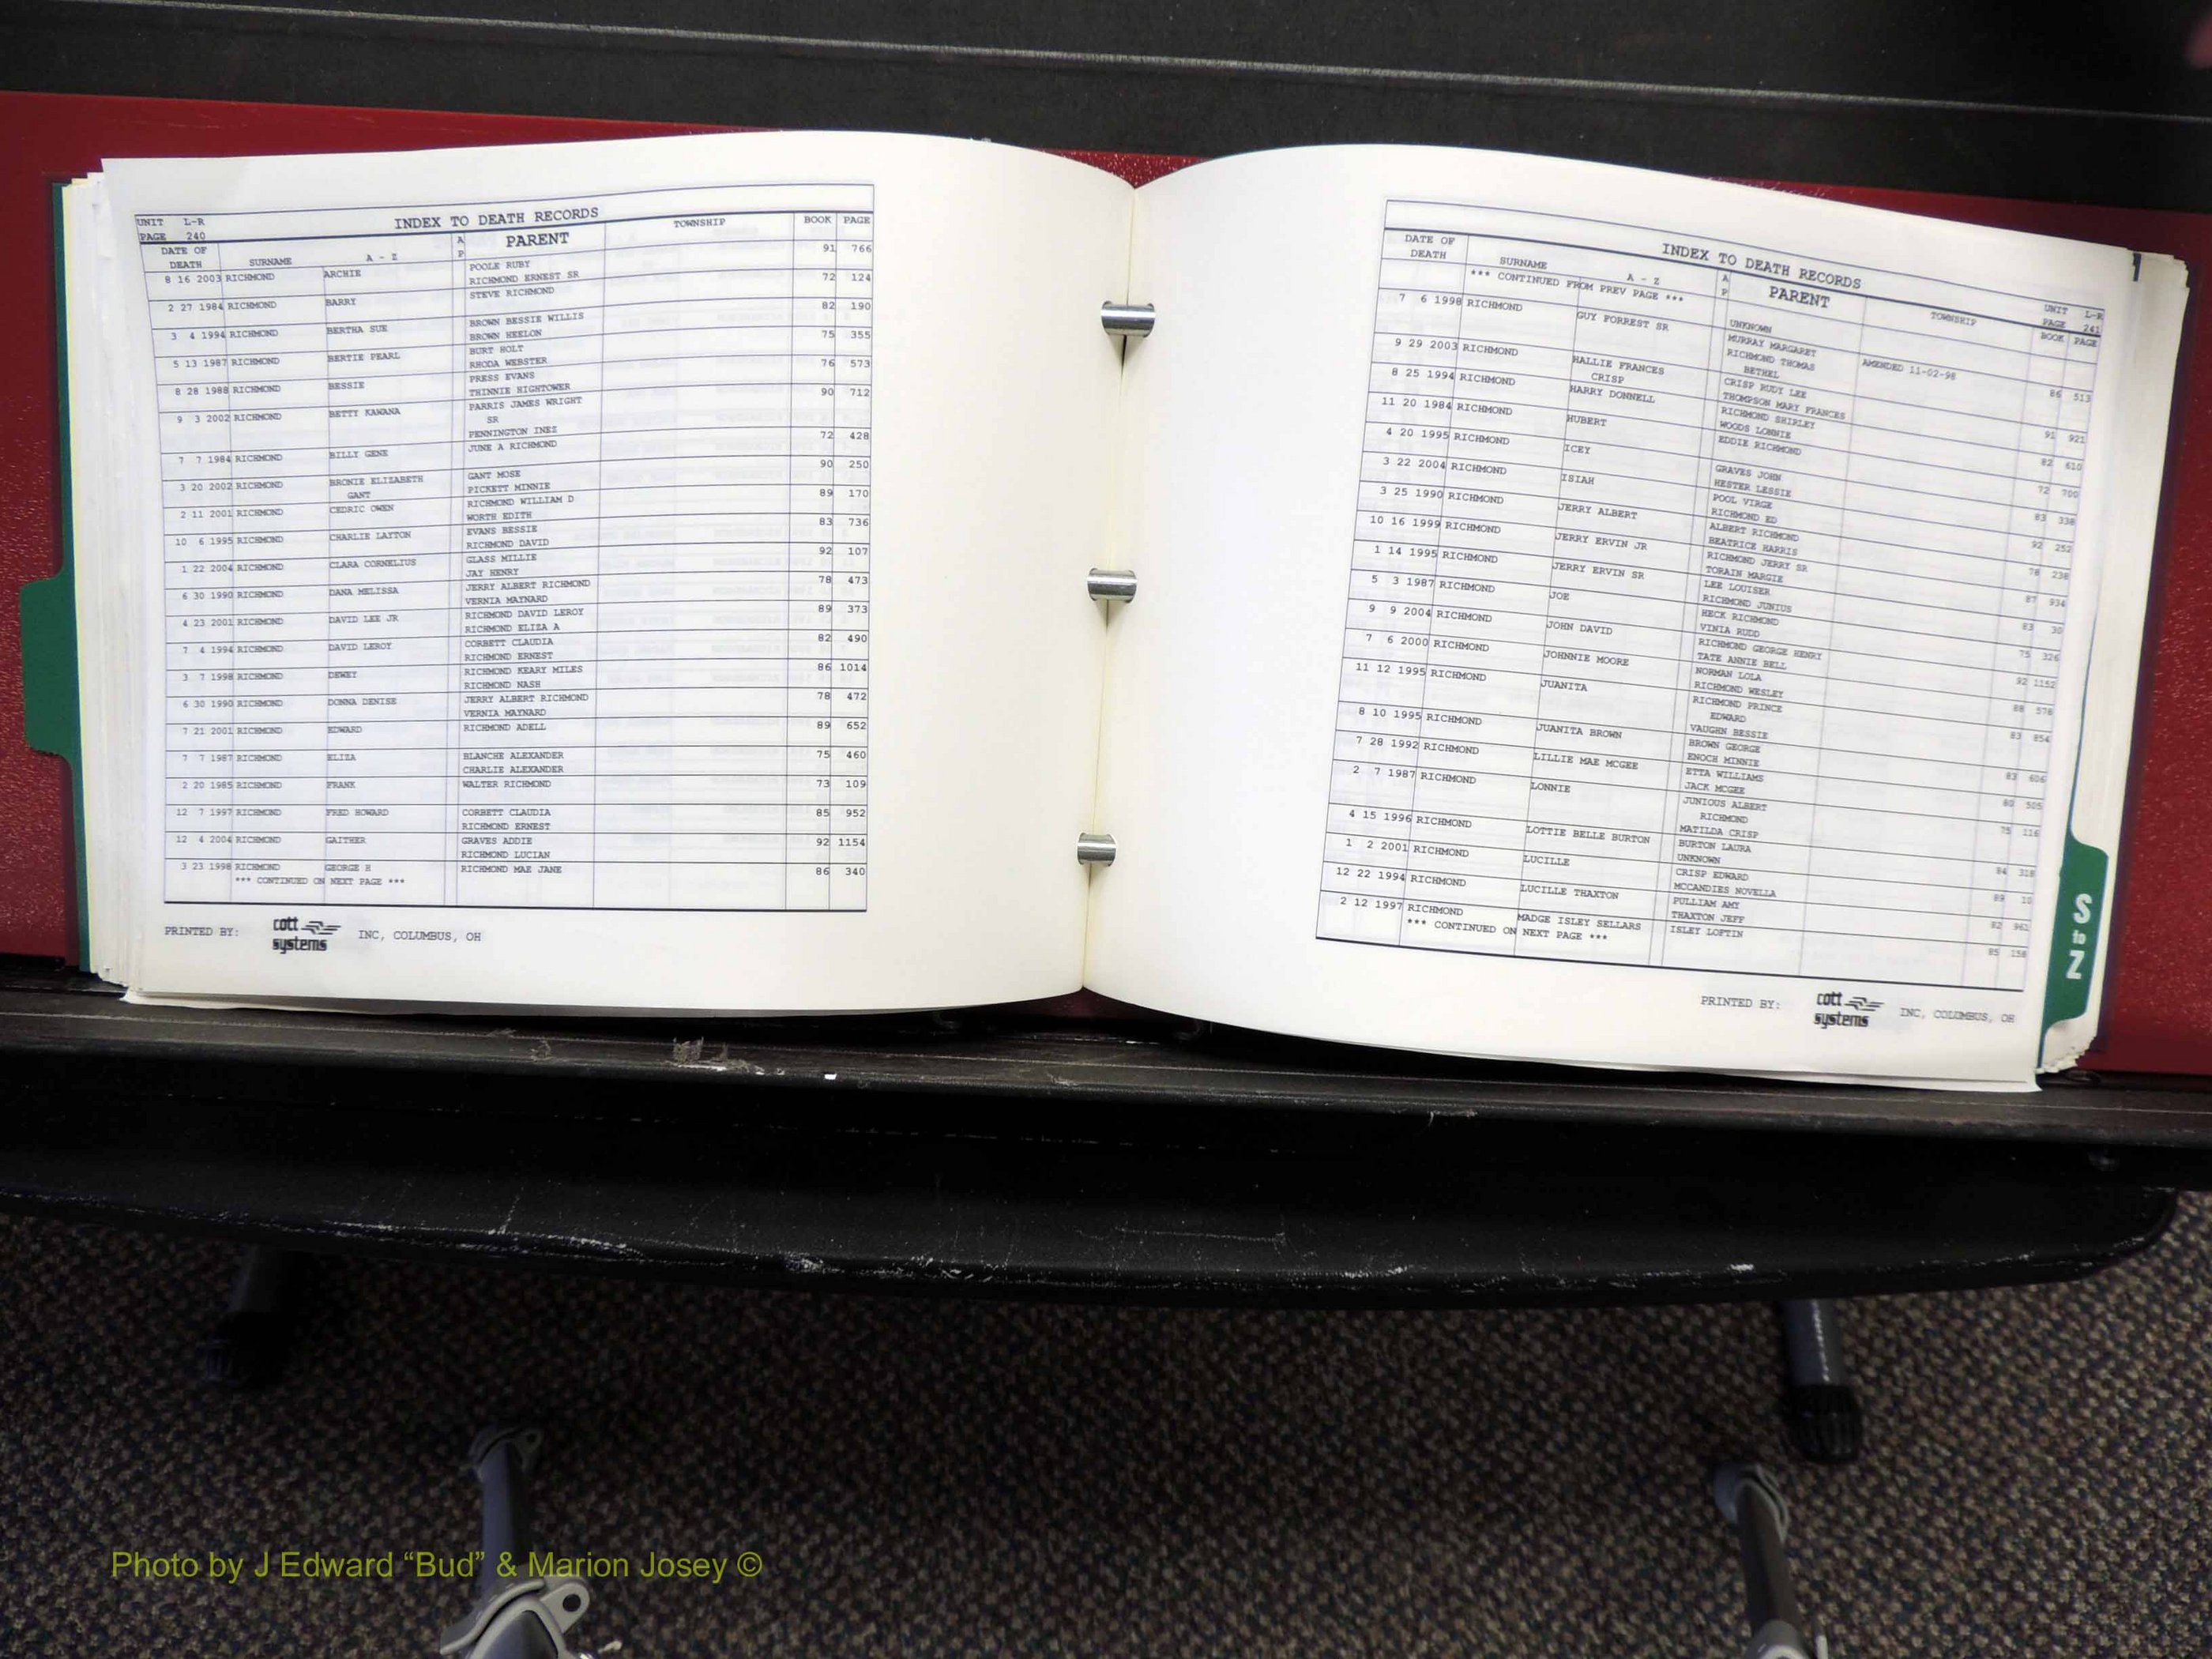 UNIT L-R INDEX TO DEATH RECORDS
PAGE 240
DATE OF DEATH SURNAME A - Z A P PARENT TOWNSHIP BOOK PAGE
8 16 2003 RICHMOND ARCHIE POOLE RUBY 91 766
RICHMOND ERNEST SR
2 27 1984 RICHMOND BARRY STEVE RICHMOND 72 124
3 4 1994 RICHMOND BERTHA SUE BROWN BESSIE WILLIS 82 190
BROWN HEELON
5 13 1987 RICHMOND BERTIE PEARL BURT HOLT 75 355
RHODA WEBSTER
8 28 1988 RICHMOND BESSIE PRESS EVANS 76 573
THINNIE HIGHTOWER
9 3 2002 RICHMOND BETTY KAWANA PARRIS JAMES WRIGHT 90 712
SR
PENNINGTON INEZ
7 7 1984 RICHMOND BILLY GENE JUNE A RICHMOND 72 428
3 20 2002 RICHMOND BRONIE ELIZABETH GANT MOSE 90 250
GANT PICKETT MINNIE
2 11 2001 RICHMOND CEDRIC OWEN RICHMOND WILLIAM D 89 170
WORTH EDITH
10 6 1995 RICHMOND CHARLIE LAYTON EVANS BESSIE 83 736
RICHMOND DAVID
1 22 2004 RICHMOND CLARA CORNELIUS GLASS MILLIE 92 107
JAY HENRY
6 30 1990 RICHMOND DANA MELISSA JERRY ALBERT RICHMOND 78 473
VERNIA MAYNARD
4 23 2001 RICHMOND DAVID LEE JR RICHMOND DAVID LEROY 89 373
RICHMOND ELIZA A
7 4 1994 RICHMOND DAVID LEROY CORBETT CLAUDIA 82 490
RICHMOND ERNEST
3 7 1998 RICHMOND DEWEY RICHMOND KEARY MILES 86 1014
RICHMOND NASH
6 30 1990 RICHMOND DONNA DENISE JERRY ALBERT RICHMOND 78 472
VERNIA MAYNARD
7 21 2001 RICHMOND EDWARD RICHMOND ADELL 89 652
7 7 1987 RICHMOND ELIZA BLANCHE ALEXANDER 75 460
CHARLIE ALEXANDER
2 20 1985 RICHMOND FRANK WALTER RICHMOND 73 109
12 7 1997 RICHMOND FRED HOWARD CORBETT CLAUDIA 85 952
RICHMOND ERNEST
12 4 2004 RICHMOND GAITHER GRAVES ADDIE 92 1154
RICHMOND LUCIAN
3 23 1998 RICHMOND GEORGE H RICHMOND MAE JANE 86 340
*** CONTINUED ON NEXT PAGE ***
PRINTED BY: cott systems INC, COLUMBUS, OH
INDEX TO DEATH RECORDS UNIT L-R
PAGE 241
DATE OF DEATH SURNAME A - Z A P PARENT TOWNSHIP BOOK PAGE
*** CONTINUED FROM PREV PAGE ***
UNKNOWN
7 6 1998 RICHMOND GUY FORREST SR MURRAY MARGARET AMENDED 11-02-98 86 513
RICHMOND THOMAS
BETHEL
9 29 2003 RICHMOND HALLIE FRANCES CRISP RUDY LEE 91 921
CRISP THOMPSON MARY FRANCES
8 25 1994 RICHMOND HARRY DONNELL RICHMOND SHIRLEY 82 610
WOODS LONNIE
11 20 1984 RICHMOND HUBERT EDDIE RICHMOND 72 700
4 20 1995 RICHMOND ICEY GRAVES JOHN 83 338
HESTER LESSIE
3 22 2004 RICHMOND ISIAH POOL VIRGE 92 252
RICHMOND ED
3 25 1990 RICHMOND JERRY ALBERT ALBERT RICHMOND 78 238
BEATRICE HARRIS
10 16 1999 RICHMOND JERRY ERVIN JR RICHMOND JERRY SR 87 934
TORAIN MARGIE
1 14 1995 RICHMOND JERRY ERVIN SR LEE LOUISER 83 30
RICHMOND JUNIUS
5 3 1987 RICHMOND JOE HECK RICHMOND 75 326
VINIA RUDD
9 9 2004 RICHMOND JOHN DAVID RICHMOND GEORGE HENRY 92 1152
TATE ANNIE BELL
7 6 2000 RICHMOND JOHNNIE MOORE NORMAN LOLA 88 576
RICHMOND WESLEY
11 12 1995 RICHMOND JUANITA RICHMOND PRINCE 83 854
EDWARD
VAUGHN BESSIE
8 10 1995 RICHMOND JUANITA BROWN BROWN GEORGE 83 606
ENOCH MINNIE
7 28 1992 RICHMOND LILLIE MAE MCGEE ETTA WILLIAMS 80 505
JACK MCGEE
2 7 1987 RICHMOND LONNIE JUNIOUS ALBERT 75 116
RICHMOND
MATILDA CRISP
4 15 1996 RICHMOND LOTTIE BELLE BURTON BURTON LAURA 84 318
UNKNOWN
1 2 2001 RICHMOND LUCILLE CRISP EDWARD 89 10
MCCANDIES NOVELLA
12 22 1994 RICHMOND LUCILLE THAXTON PULLIAM AMY 82 962
THAXTON JEFF
2 12 1997 RICHMOND MADGE ISLEY SELLARS ISLEY LOFTIN 85 158
*** CONTINUED ON NEXT PAGE ***
PRINTED BY: cott systems INC, COLUMBUS, OH
S to Z
Photo by J Edward “Bud” & Marion Josey ©